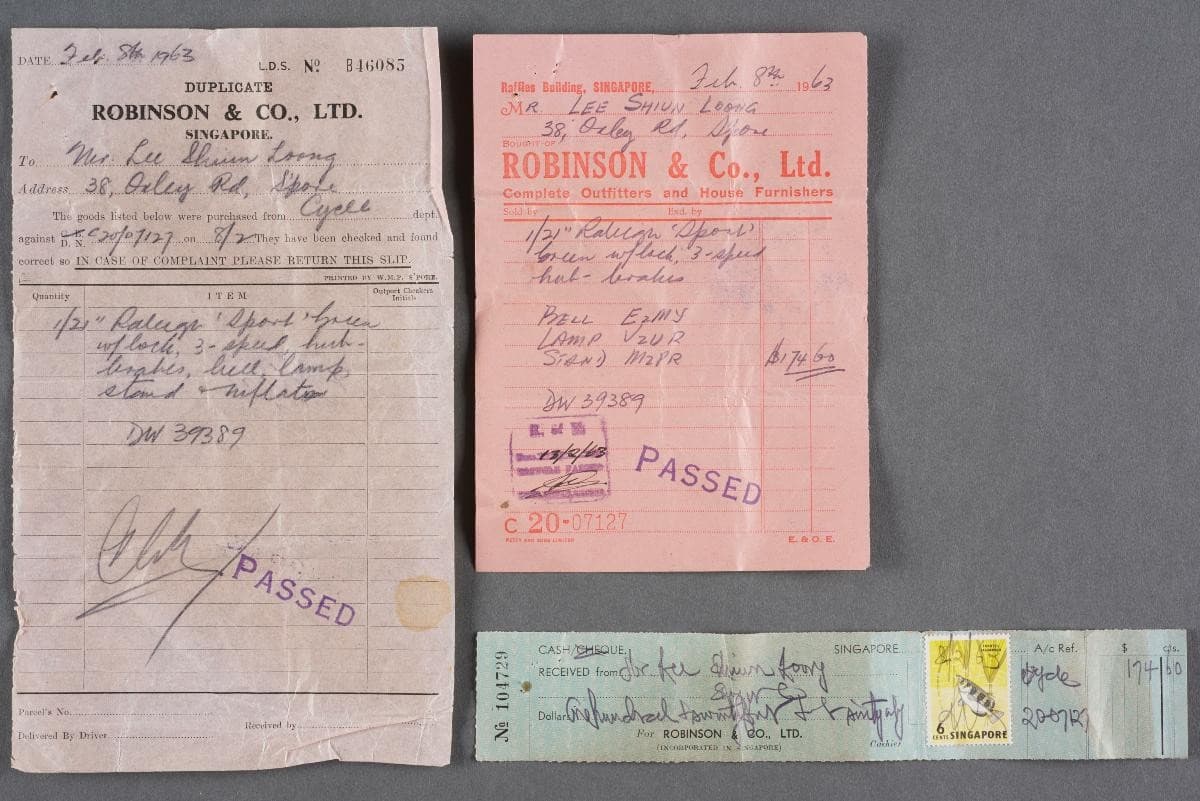 DATE Feb. 8th 1963
L.D.S. No B46085
DUPLICATE
ROBINSON & CO., LTD.
SINGAPORE.
To Mr. Lee Shiun Loong
Address 38, Oxley Rd, S'pore
The goods listed below were purchased from Cycle dept.
against D. N. C20/07127 on 8/2 They have been checked and found
correct so IN CASE OF COMPLAINT PLEASE RETURN THIS SLIP.
PRINTED BY W.M.P. S'PORE.
Quantity ITEM Outport Checkers Initials
1/21" Raleigh 'Sport' Green
w/lock, 3-speed, hub-
brakes, bell, lamp,
stand & inflator
DW 39389
PASSED
Parcel's No.
Received by
Delivered By Driver
Raffles Building, SINGAPORE, Feb. 8th 1963
MR. LEE SHIUN LOONG
38, Oxley Rd, S'pore
BOUGHT OF
ROBINSON & Co., Ltd.
Complete Outfitters and House Furnishers
Sold by Exd. by
1/21" Raleigh 'Sport'
Green w/lock, 3-speed
hub-brakes
BELL EZMY
LAMP VZUR
STAND MZPR $174 60
DW 39389
13/2/63
PASSED
C 20-07127
E. & O. E.
No 104729
CASH/CHEQUE. SINGAPORE A/c Ref. $ cts.
RECEIVED from Mr Lee Shiun Loong
Dollars One hundred &
For ROBINSON & CO., LTD.
(INCORPORATED IN SINGAPORE)
Cashier
8/2/63
6 CENTS SINGAPORE
Cycle 174 60
2007127